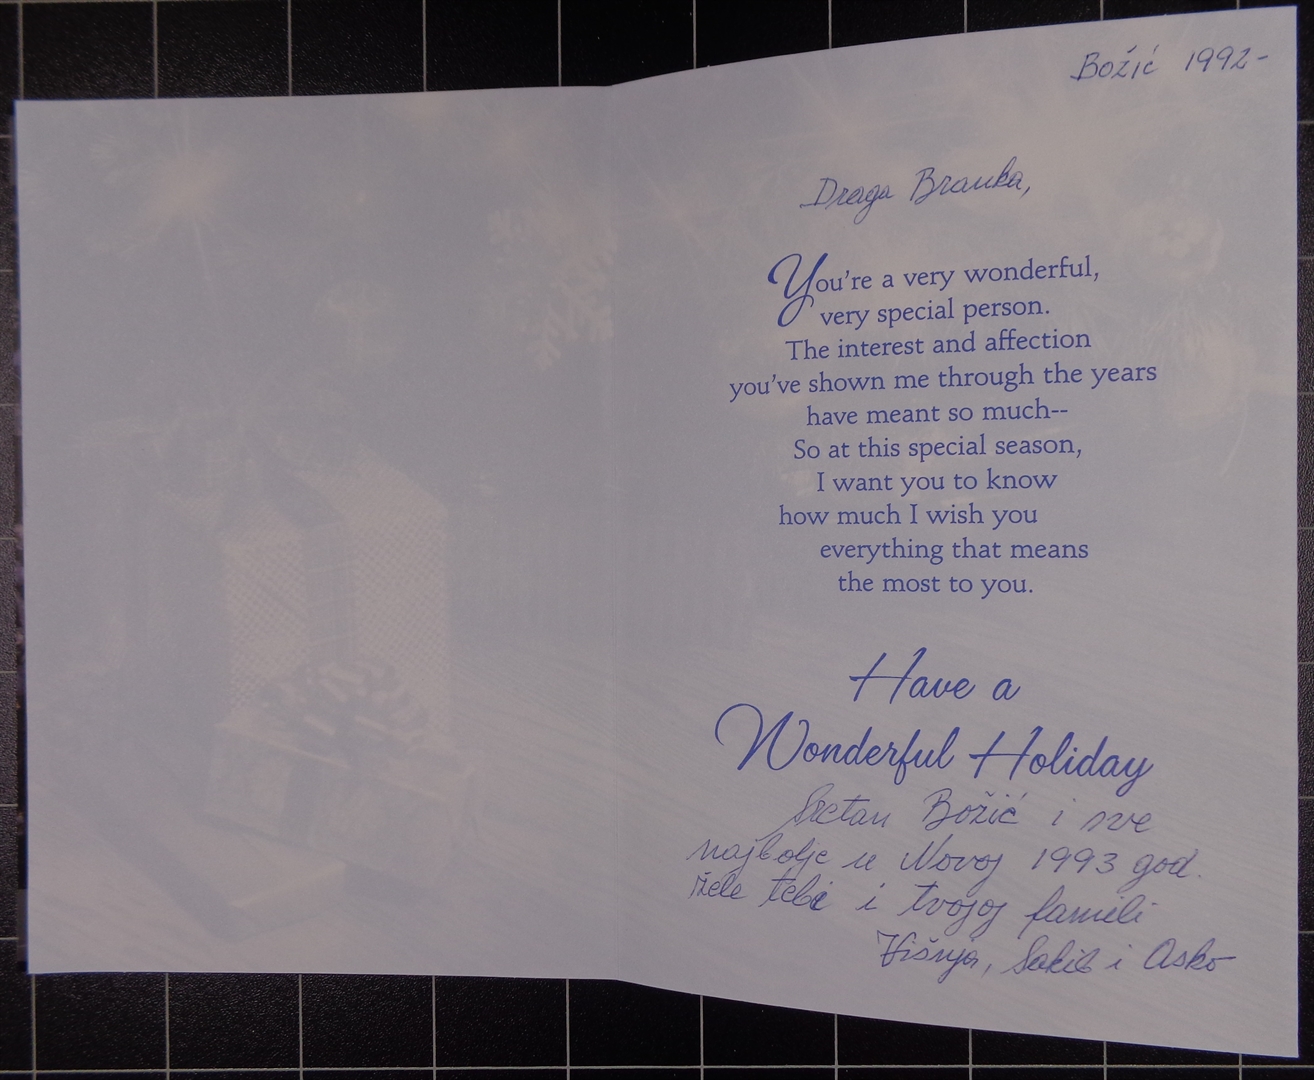 Božić 1992-
Draga Branka,
You're a very wonderful,
very special person.
The interest and affection
you've shown me through the years
have meant so much--
So at this special season,
I want you to know
how much I wish you
everything that means
the most to you.
Have a
Wonderful Holiday
Sretan Božić i sve
najbolje u Novoj 1993 god.
žele tebi i tvojoj famili
Višnja, Sakib i Asko